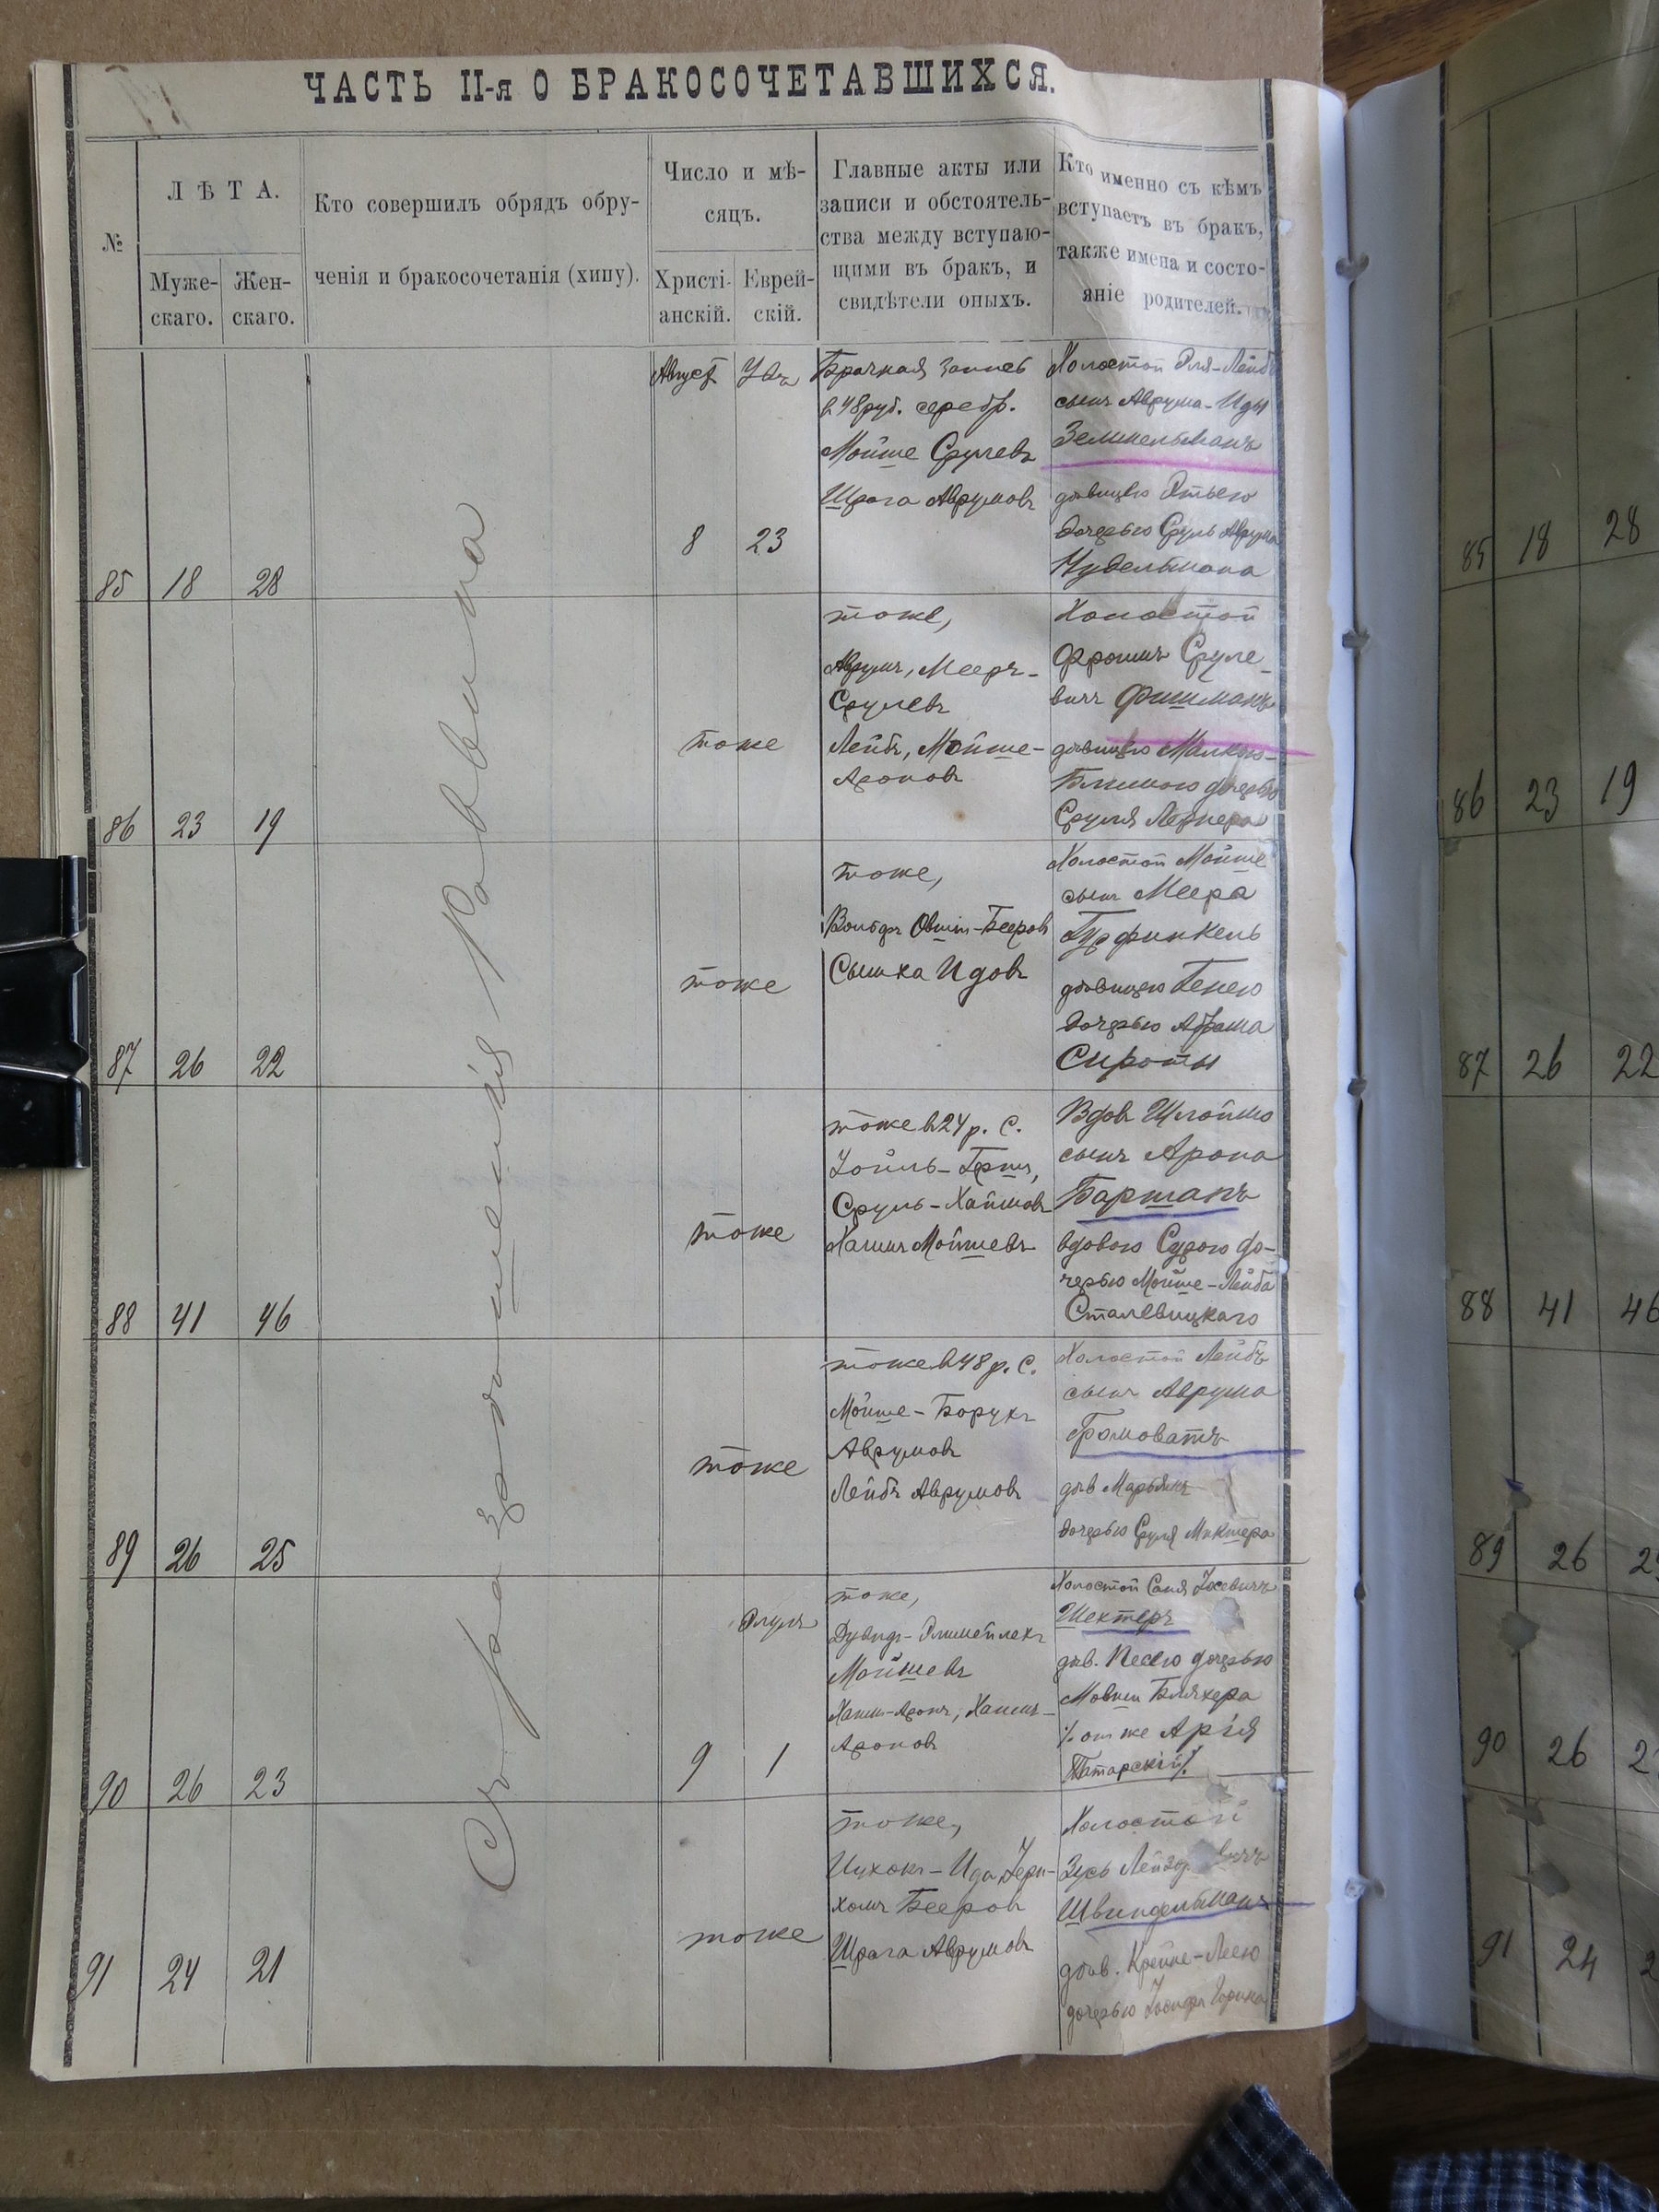 ЧАСТЬ II-я О БРАКОСОЧЕТАВШИХСЯ.
№
ЛѢТА.
Муже-
скаго.
Жен-
скаго.
Кто совершилъ обрядъ обру-
ченія и бракосочетанія (хипу).
Число и мѣ-
сяцъ.
Христі-
анскій.
Еврей-
скій.
Главные акты или
записи и обстоятель-
ства между вступаю-
щими въ бракъ, и
свидѣтели оныхъ.
Кто именно съ кѣмъ
вступаетъ въ бракъ,
также имена и состо-
яніе родителей.
Съ разрешенія Раввина
85 18 28
Август
8 23
Брачная запись
в 48 руб. серебр.
Мойше Срулевъ
Шрага Аврумовъ
Холостой Эля-Лейбъ
сынъ Аврума-Иды
Зельмельманъ
дѣвицею Этьею
дочерью Сруль Аврума
Нудельмана
86 23 19
тоже
тоже,
Аврумъ, Мееръ-
Срулевъ
Лейбъ, Мойше-
Ароновъ
Холостой
Фроимъ Сруле-
вичъ Фишманъ
дѣвицею Малкою-
Блимою дочерью
Сруля Лернера
87 26 22
тоже
тоже,
Вольфъ Овшій-Бееровъ
Сымха Идовъ
Холостой Мойше
сынъ Меера
Гурфинкель
дѣвицею Генею
дочерью Абрама
Сироты
88 41 46
тоже
тоже в 24 р. С.
Сруль-Хаимовъ
Хаимъ Мойшевъ
Вдов Шлойме
сынъ Арона
Барманъ
вдовою Сурою до-
черью Мойше-Лейба
Сталевицкаго
89 26 25
тоже
тоже в 48 р. С.
Мойше-Борухъ
Аврумовъ
Лейбъ Аврумовъ
Холостой Лейбъ
сынъ Аврума
Громоватъ
дѣв
дочерью Сруля
90 26 23
Элулъ
9 1
тоже,
Дувидъ-Элимейлехъ
Мойшевъ
Хаимъ-Аронъ, Хаимъ-
Ароновъ
Холостой
Шехтеръ
дѣв. Песею дочерью
Мовши Бляхера
/. он же Арія
Татарскій/.
91 24 21
тоже
тоже,
Ицхокъ-Ида
Бееровъ
Шрага Аврумовъ
Холостой
Зусь
Швиндельманъ
дѣв. Крейне-Леею
дочерью
85 18 28
86 23 19
87 26 22
88 41 46
89 26
90 26
91 24